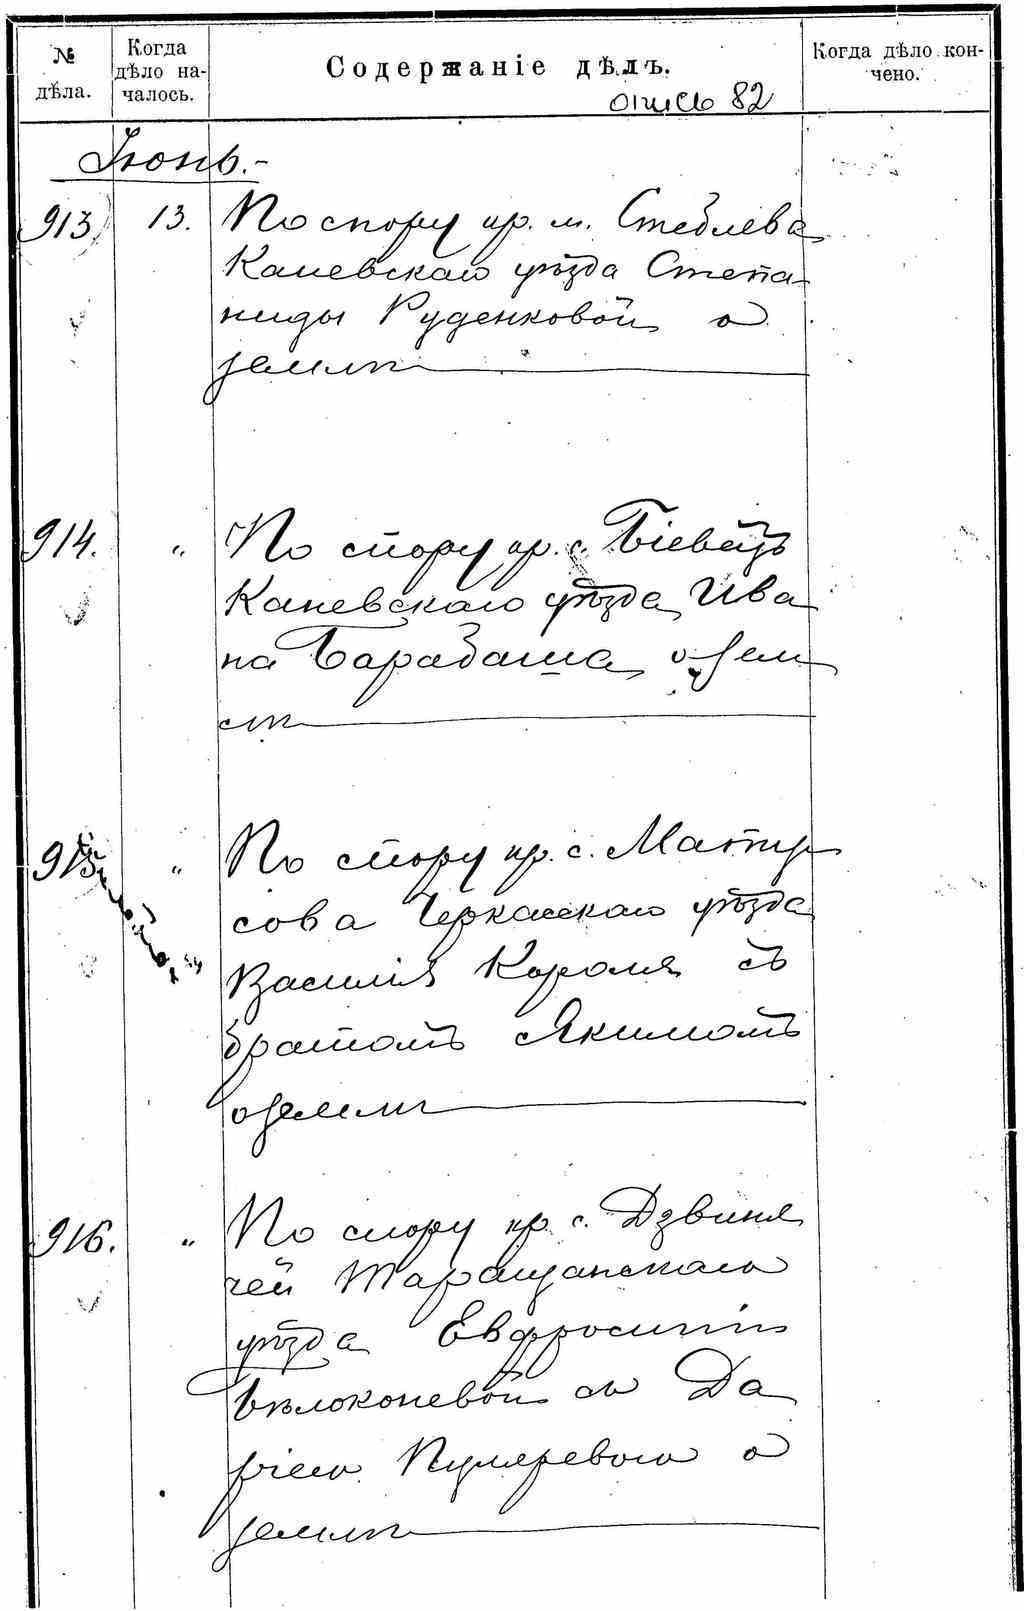 № дѣла.
Когда дѣло началось.
Содержаніе дѣлъ.
Когда дѣло кончено.
опись 82
Іюнь.-
913 13. По спору кр. м. Стеблева
Каневскаго уѣзда Степа-
ниды Руденковой о
землѣ
914. " По спору кр. с. Біевецъ
Каневскаго уѣзда Ива
на Барабаша о зем
лѣ
915 " По спору кр. с. Мату
сова Черкасскаго уѣзда
Василія Короля съ
братомъ Якимомъ
о землѣ
916. " По спору кр. с. Дзвиня
чей Таращанскаго
уѣзда Евфросиніи
Бѣлоконевой съ Да
ріею о
землѣ